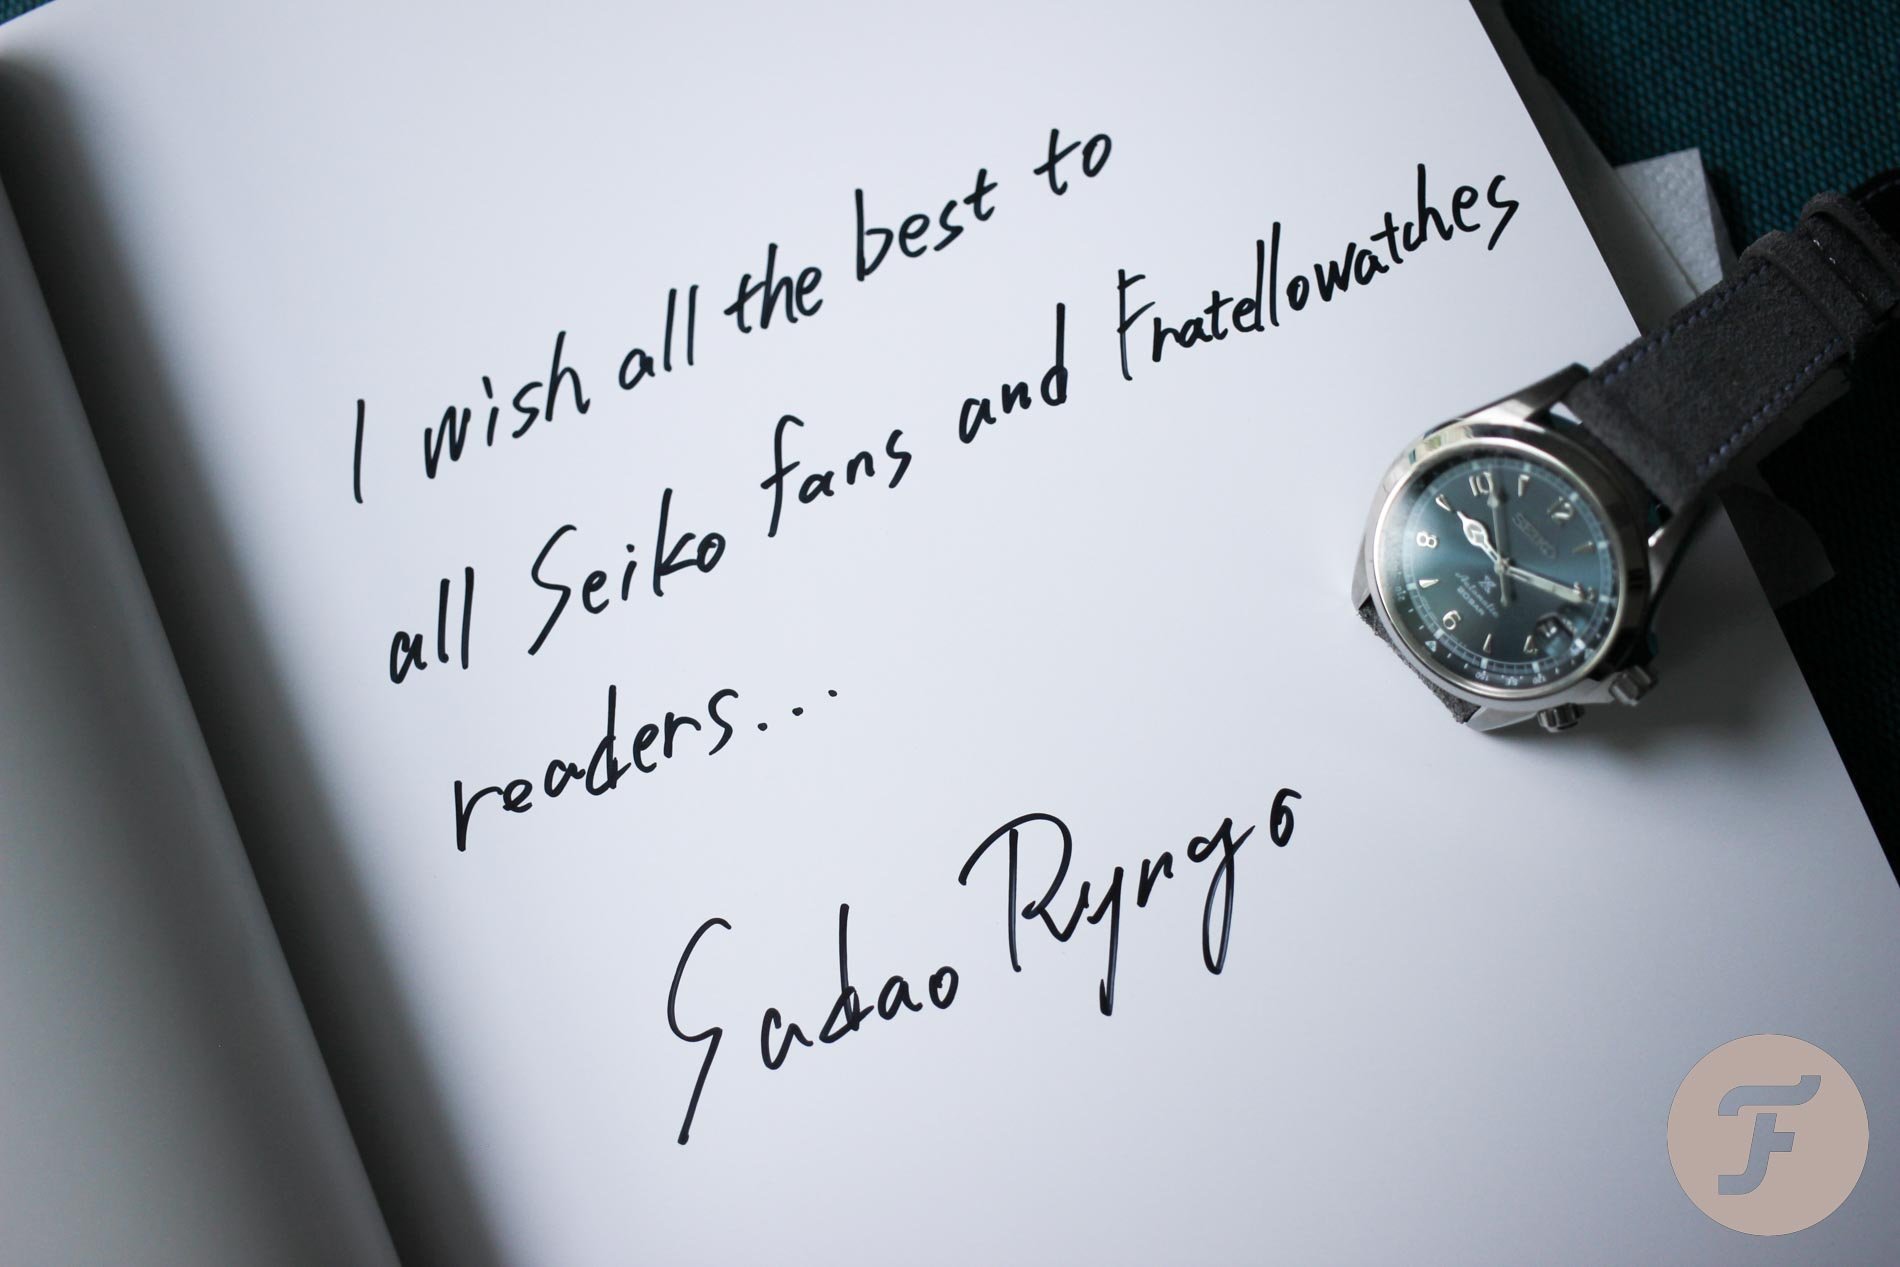 I wish all the best to
all Seiko fans and Fratellowatches
readers...
Sadao Ryugo
10
12
8
6
SEIKO
Automatic
20 BAR
F